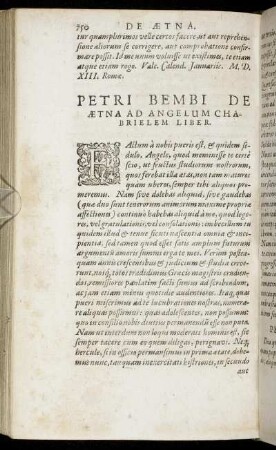 250 DE ÆTNA.
tur quamplurimos velle certos facere ut aut reprehen-
sione aliorum se corrigere, aut comprobatione confir-
mare possit. Id me unum voluisse ut existimes, te etiam
atque etiam rogo. Vale. Calend. Januariis. M. D.
XIII. Romæ.
PETRI BEMBI DE
ÆTNA AD ANGELUM CHA-
BRIELEM LIBER.
FActum à nobis pueris est, & quidem se-
dulo, Angele, quod meminisse te certò
scio, ut fructus studiorum nostrorum,
quos ferebat illa ætas, non tam maturos
quàm uberes, semper tibi aliquos pro-
meremus. Nam sive dolebas aliquid, sive gaudebas
(quæ duo sunt tenerorum animorum maxime propriæ
affectiones) continuò habebas aliquid à me, quod lege-
res, vel gratulationis, vel consolationis: imbecillum tu
quidem illud & tenue sicuti nascentia omnia & inci-
pientia, sed tamen quod esset satis amplum futurum
argumentum amoris summi erga te mei. Verum postea-
quam annis crescentibus & judicium & studia creve-
runt, nosque totos tradidimus Græcis magistris erudien-
dos, remissiores paulatim facti sumus ad scribendum,
ac jam etiam minus quotidie audentiores. Itaque quas
pueri miserimus ad te lucubrationes nostras, numera-
re aliquas possumus: quas adolescentes, non possumus:
quo in consilio nobis diutius permanendum esse non puto.
Nam ut interdum non loqui moderati hominis est, sic
semper tacere cum eo quem diligas, perignavi. Neque
hercule, si in officio permansimus in prima ætate, debe-
mus nunc, tanquam inexercitati histriones, in secundo
aut